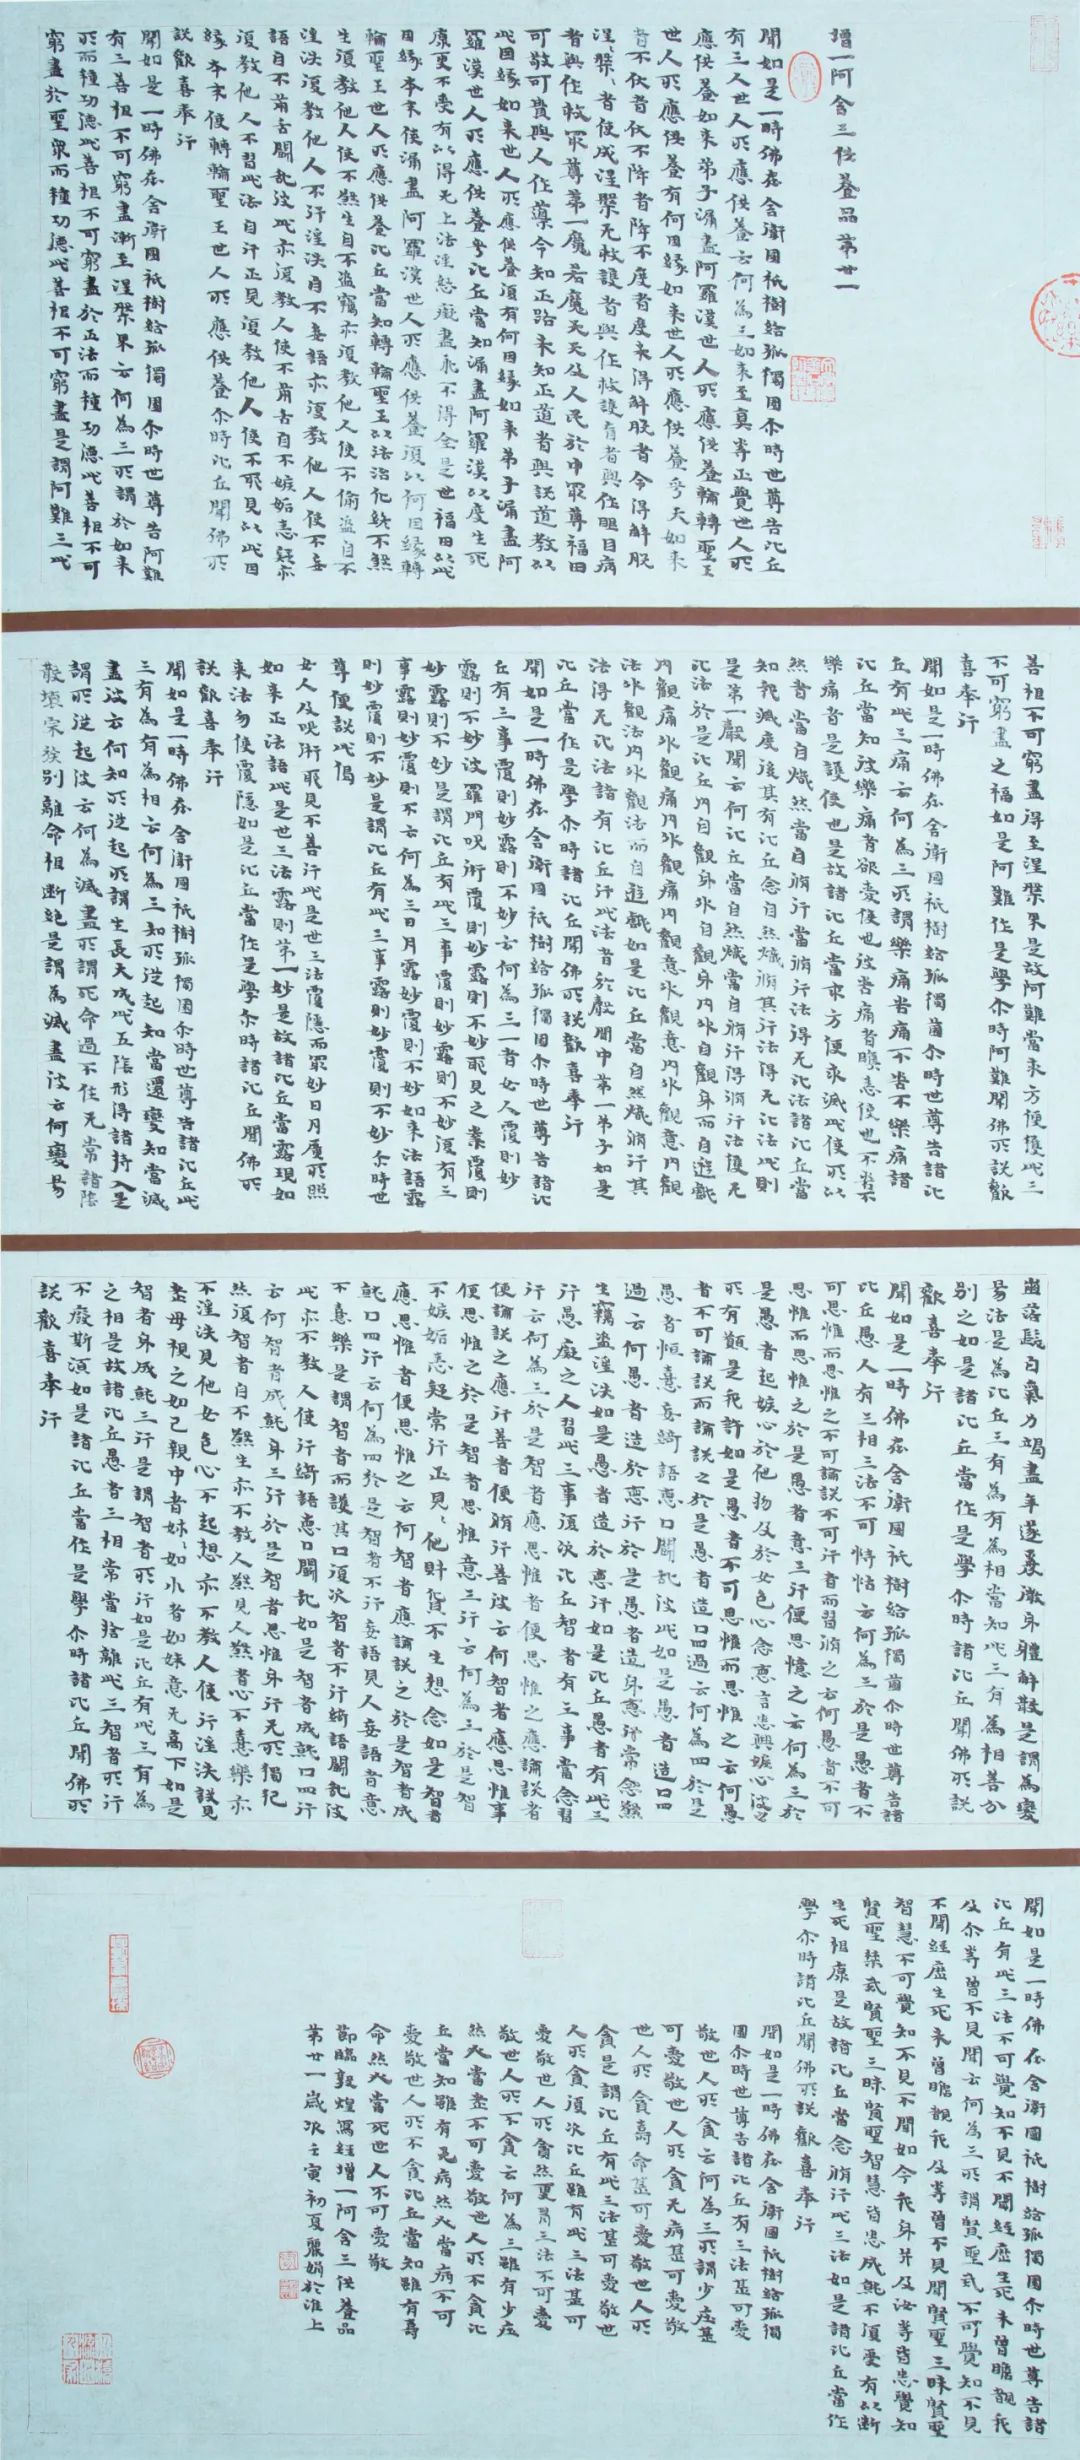 增一阿含三供養品第廿一
聞如是一時佛在舍衛國祇樹給孤獨園尒時世尊告比丘
有三人世人所應供養云何為三如來至真等正覺世人所
應供養如來弟子漏盡阿羅漢世人所應供養輪轉聖王
世人所應供養有何因緣如來世人所應供養乎夫如來
者不伏者伏不降者降不度者度未得解脫者令得解脫
者與作救眾尊第一魔若魔天天及人民於中眾尊福田
可敬可貴與人作導令知正路未知正道者與說道教以
此因緣如來世人所應供養須有何因緣如來弟子漏盡阿
羅漢世人所應供養乎比丘當知漏盡阿羅漢以度生死
康更不受有以得无上法淫怒癡盡永不得全是世福田以此
因緣本末使漏盡阿羅漢世人所應供養復以何因緣轉
輪聖王世人所應供養比丘當知轉輪聖王以法治化終不煞
生復教他人使不煞生自不盜竊亦復教他人使不偷盜自不
淫泆復教他人不行淫泆自不妄語亦復教他人使不妄
復教他人不習此法自行正見復教他人使不耶見以此因
緣本末使轉輪聖王世人所應供養尒時比丘聞佛所
說歡喜奉行
聞如是一時佛在舍衛國祇樹給孤獨園尒時世尊告阿難
有三善根不可窮盡漸至涅槃界云何為三所謂於如來
所而種功德此善根不可窮盡於正法而種功德此善根不可
窮盡於聖眾而種功德此善根不可窮盡是謂阿難三此
善根不可窮盡得至涅槃界是故阿難當求方便獲此三
不可窮盡之福如是阿難作是學尒時阿難聞佛所說歡
喜奉行
聞如是一時佛在舍衛國祇樹給孤獨園尒時世尊告諸比
丘有此三痛云何為三所謂樂痛苦痛不苦不樂痛諸
比丘當知彼樂痛者欲愛使也彼苦痛者瞋恚使也不苦不
樂痛者是護使也是故諸比丘當求方便求滅此使所以
然者當自熾然當自脩行當脩行法得无比法諸比丘當
知我滅度後其有比丘念自然熾脩其行法得无比法此則
是第一聲聞云何比丘當自然熾當自脩行得脩行法獲无
比法於是比丘內自觀身外自觀身內外自觀身而自遊戲
內觀痛外觀痛內外觀痛內觀意外觀意內外觀意內觀
法外觀法內外觀法而自遊戲如是比丘當自然熾脩行其
法得无比法諸有比丘行此法者於聲聞中第一弟子如是
比丘當作是學尒時諸比丘聞佛所說歡喜奉行
聞如是一時佛在舍衛國祇樹給孤獨園尒時世尊告諸比
丘有三事覆則妙露則不妙云何為三一者女人覆則妙
露則不妙婆羅門呪術覆則妙露則不妙耶見之業覆則
妙露則不妙是謂比丘有此三事覆則妙露則不妙復有三
事露則妙覆則不云何為三日月露則妙覆則不妙如來法語露
則妙覆則不妙是謂比丘有此三事露則妙覆則不妙尒時世
尊便說此偈
女人及呪術耶見不善行此是世三法覆隱而眾妙日月廣所照
如來正法語此是世三法露則第一妙是故諸比丘當露現如
來法勿使覆隱如是比丘當作是學尒時諸比丘聞佛所
說歡喜奉行
聞如是一時佛在舍衛國祇樹孤獨園尒時世尊告諸比丘此
三有為有為相云何為三知所從起知當還變知當滅
盡彼云何知所從起所謂生長大成此五陰形得諸持入是
謂所從起彼云何為滅盡所謂死命過不住无常諸陰
散壞宗族別離命根斷絕是謂為滅盡彼云何變易
齒落髮白氣力竭盡年遂衰微身體解散是謂為變
易法是為比丘三有為有為相當知此三有為相善分
別之如是諸比丘當作是學尒時諸比丘聞佛所說
歡喜奉行
聞如是一時佛在舍衛國祇樹給孤獨園尒時世尊告諸
比丘愚人有三相三法不可恃怙云何為三於是愚者不
可思惟而思惟之不可論說不可行者而習脩之云何愚者不可
思惟而思惟之於是愚者意三行便思憶之云何為三於
是愚者起嫉心於他物及於女色心念惡言
所有願是我許如是愚者不可思惟而思惟之云何愚
者不可論說而論說之於是愚者造口四過云何為四於是
愚者恒憙妄綺語惡口鬪訩彼此如是愚者造口四
過云何愚者造於惡行於是愚者造身惡行常念煞
生竊盜淫泆如是愚者造於惡行如是比丘愚者有此三
行愚癡之人習此三事復次比丘智者有三事當念習
行云何為三於是智者應思惟者便思惟之應論說者
便論說之應行善者便脩行善彼云何智者應思惟事
便思惟之於是智者思惟意三行云何為三於是智
不嫉妬恚疑常行正見見他財貨不生想念如是智者
應思惟者便思惟之云何智者應論說之於是智者成
就口四行云何為四於是智者不行妄語見人妄語者意
不憙樂是謂智者而護其口復次智者不行綺語鬪訩彼
此亦不教人使行綺語惡口鬪訩如是智者成就口四行
云何智者成就身三行於是智者思惟身行无所獨犯
然復智者自不煞生亦不教人煞見人煞者心不憙樂亦
不淫泆見他女色心不起想亦不教人使行淫泆設見
老母視之如己親中者姊如小者如妹意无高下如是
智者身成就三行是謂智者所行如是比丘有此三有為
之相是故諸比丘愚者三相常當捨離此三智者所行
不廢斯須如是諸比丘當作是學尒時諸比丘聞佛所
說歡喜奉行
聞如是一時佛在舍衛國祇樹給孤獨園尒時世尊告諸
比丘有此三法不可覺知不見不聞經歷生死未曾瞻覩我
及尒等曾不見聞云何為三所謂賢聖戒不可覺知不見
不聞經歷生死未曾瞻覩我及尒等曾不見聞賢聖三昧賢聖
智慧不可覺知不見不聞如今我身并及汝等皆悉覺知
賢聖禁戒賢聖三昧賢聖智慧皆悉成就不復受有以斷
生死根原是故諸比丘當念脩行此三法如是諸比丘當作
學尒時諸比丘聞佛所說歡喜奉行
聞如是一時佛在舍衛國祇樹給孤獨
園尒時世尊告諸比丘有三法甚可愛
敬世人所貪云何為三所謂少莊甚
可愛敬世人所貪无病甚可愛敬
世人所貪壽命甚可愛敬世人所
貪是謂比丘有此三法甚可愛敬世
人所貪復次比丘雖有此三法甚可
愛敬世人所貪然更有三法不可愛
敬世人所不貪云何為三雖有少莊
然必當老不可愛敬世人所不貪比
丘當知雖有无病然必當病不可
愛敬世人所不貪比丘當知雖有壽
命然必當死世人不可愛敬
節臨敦煌寫經增一阿含三供養品
第廿一歲次壬寅初夏麗娟於淮上